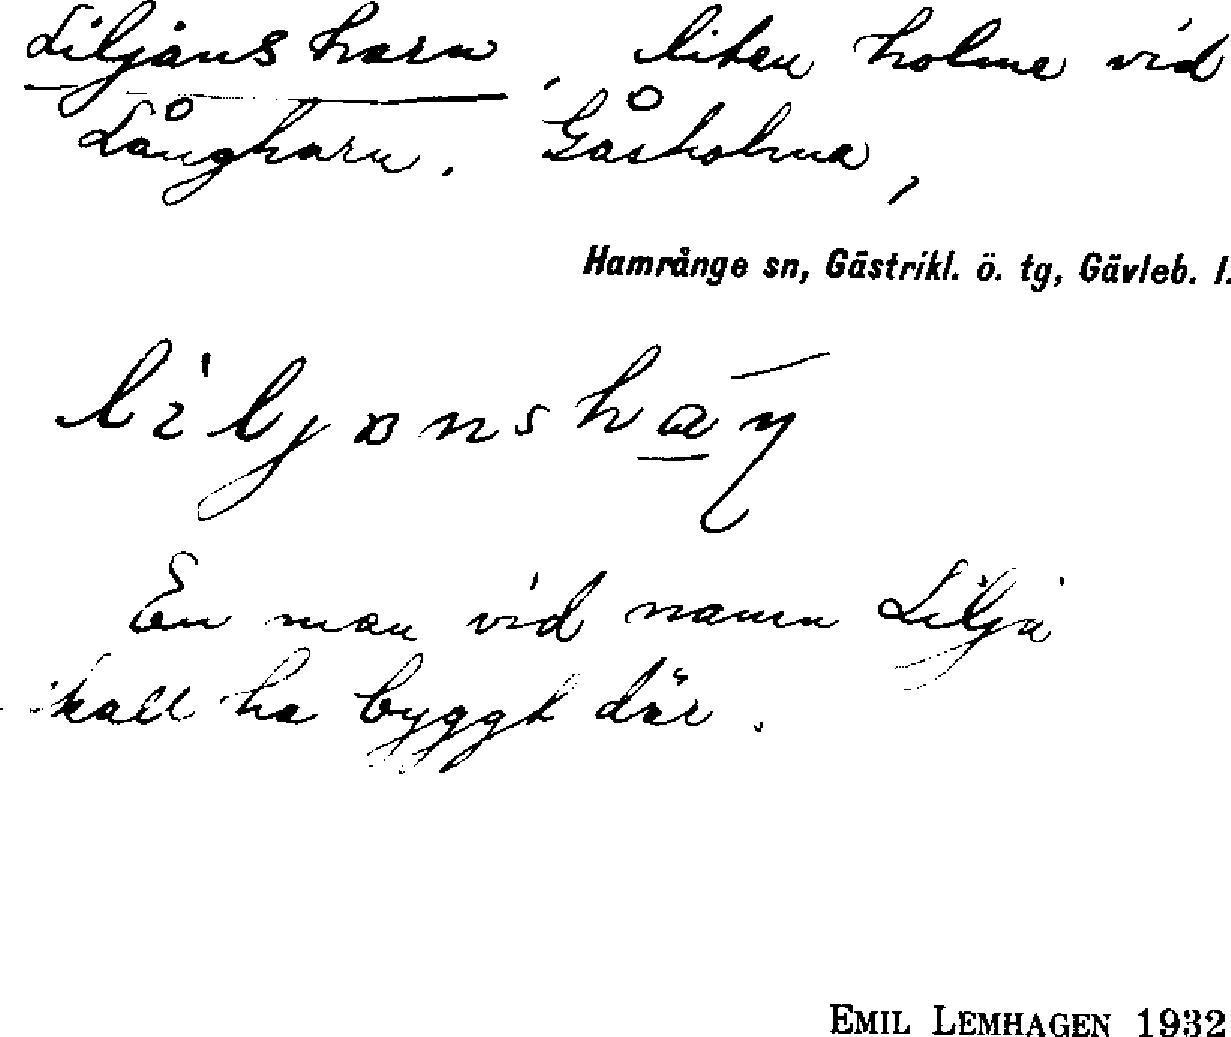 Liljans harn, liten holme vid
Långharn. Gåsholma,
Hamrånge sn, Gästrikl. ö. tg, Gävleb. l.
En man vid namn Lilja
skall ha byggt där.
EMIL LEMHAGEN 1932